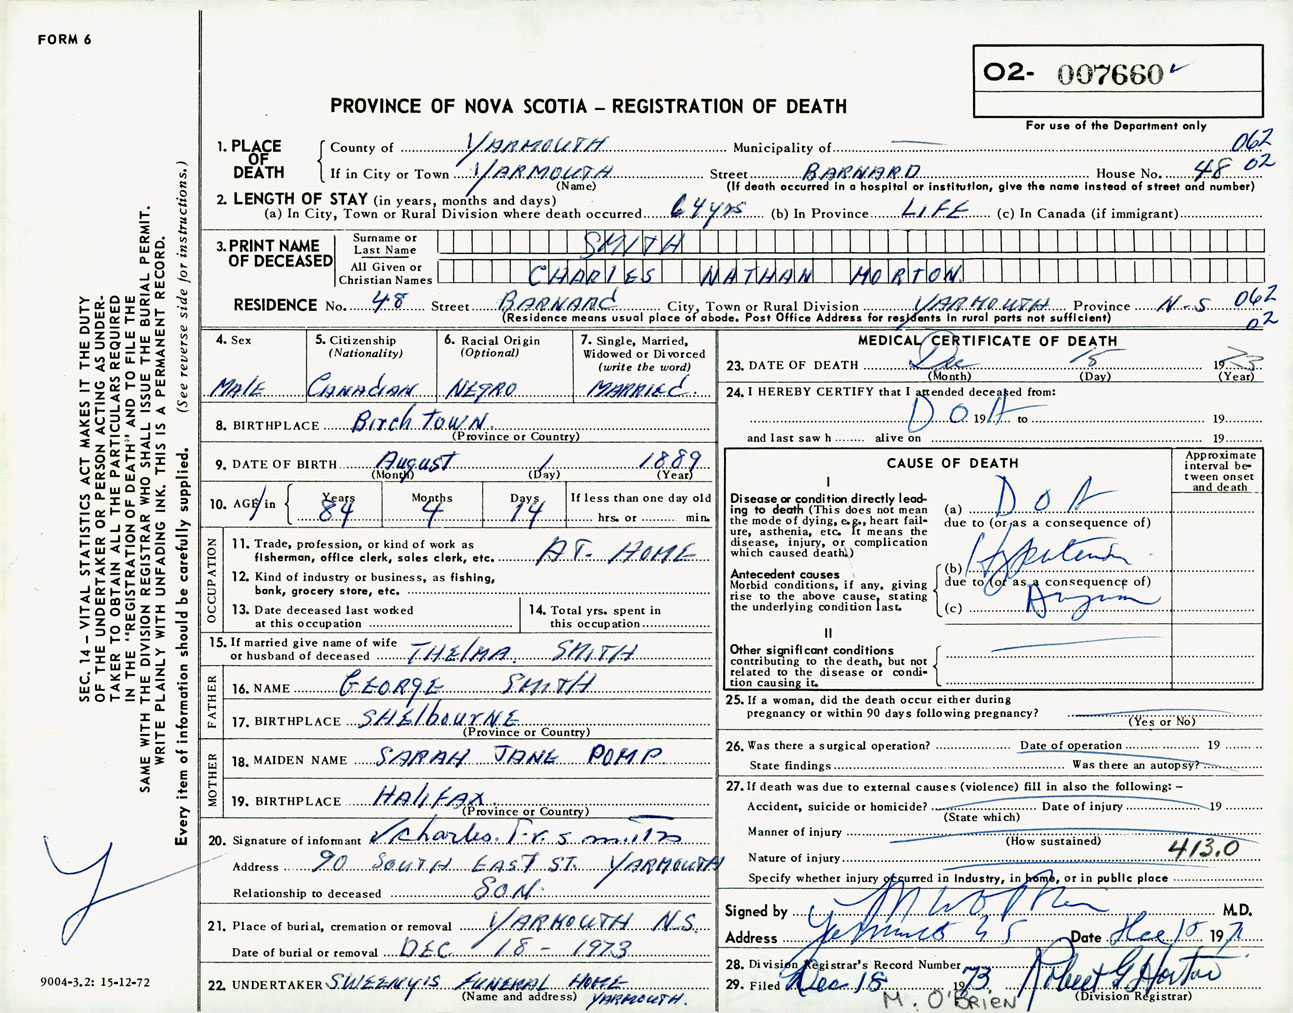 FORM 6
O2- 007660
PROVINCE OF NOVA SCOTIA – REGISTRATION OF DEATH
For use of the Department only
1. PLACE OF DEATH
County of YARMOUTH Municipality of — 062
If in City or Town YARMOUTH Street BARNARD House No. 48 02
(Name) (If death occurred in a hospital or institution, give the name instead of street and number)
2. LENGTH OF STAY (in years, months and days)
(a) In City, Town or Rural Division where death occurred 64 yrs (b) In Province LIFE (c) In Canada (if immigrant)
3. PRINT NAME OF DECEASED
Surname or Last Name SMITH
All Given or Christian Names CHARLES NATHAN MORTON
RESIDENCE No. 48 Street BARNARD City, Town or Rural Division YARMOUTH Province N-S 062
(Residence means usual place of abode. Post Office Address for residents in rural parts not sufficient) 02
4. Sex MALE
5. Citizenship (Nationality) CANADIAN
6. Racial Origin (Optional) NEGRO
7. Single, Married, Widowed or Divorced (write the word) MARRIED
8. BIRTHPLACE Birch Town
(Province or Country)
9. DATE OF BIRTH August 1 1889
(Month) (Day) (Year)
10. AGE in Years 84 Months 4 Days 14 If less than one day old hrs. or min.
OCCUPATION
11. Trade, profession, or kind of work as fisherman, office clerk, sales clerk, etc. AT HOME
12. Kind of industry or business, as fishing, bank, grocery store, etc.
13. Date deceased last worked at this occupation
14. Total yrs. spent in this occupation
15. If married give name of wife or husband of deceased THELMA SMITH
FATHER
16. NAME GEORGE SMITH
17. BIRTHPLACE SHElboURNE
(Province or Country)
MOTHER
18. MAIDEN NAME SARAH JANE POMP
19. BIRTHPLACE HALIFAX
(Province or Country)
20. Signature of informant Charles T.r. Smith
Address 90 SOUTH EAST ST. YARMOUTH
Relationship to deceased SON
21. Place of burial, cremation or removal YARMOUTH N.S.
Date of burial or removal DEC 18 - 1973
22. UNDERTAKER SWEENY'S FUNERAL HOME
(Name and address) YARMOUTH.
MEDICAL CERTIFICATE OF DEATH
23. DATE OF DEATH Dec 15 1973
(Month) (Day) (Year)
24. I HEREBY CERTIFY that I attended deceased from:
DOA 19 to 19
and last saw h alive on 19
CAUSE OF DEATH
Approximate interval between onset and death
I
Disease or condition directly leading to death (This does not mean the mode of dying, e.g., heart failure, asthenia, etc. It means the disease, injury, or complication which caused death.)
(a) DOA
due to (or as a consequence of)
Antecedent causes
Morbid conditions, if any, giving rise to the above cause, stating the underlying condition last.
(b)
due to (or as a consequence of)
(c) Angina
II
Other significant conditions
contributing to the death, but not related to the disease or condition causing it.
25. If a woman, did the death occur either during pregnancy or within 90 days following pregnancy?
(Yes or No)
26. Was there a surgical operation? Date of operation 19
State findings Was there an autopsy?
27. If death was due to external causes (violence) fill in also the following: –
Accident, suicide or homicide? Date of injury 19
(State which)
Manner of injury
(How sustained)
Nature of injury 413.0
Specify whether injury occurred in industry, in home, or in public place
Signed by M W O'Brien M.D.
Address Yarmouth N S Date Dec 15 197
28. Division Registrar's Record Number
29. Filed Dec. 18 1973 Robert G Horton
(Division Registrar)
M. O'BRIEN
SEC. 14 – VITAL STATISTICS ACT MAKES IT THE DUTY
OF THE UNDERTAKER OR PERSON ACTING AS UNDER-
TAKER TO OBTAIN ALL THE PARTICULARS REQUIRED
IN THE "REGISTRATION OF DEATH" AND TO FILE THE
SAME WITH THE DIVISION REGISTRAR WHO SHALL ISSUE THE BURIAL PERMIT.
WRITE PLAINLY WITH UNFADING INK. THIS IS A PERMANENT RECORD.
Every item of information should be carefully supplied. (See reverse side for instructions.)
9004-3.2: 15-12-72